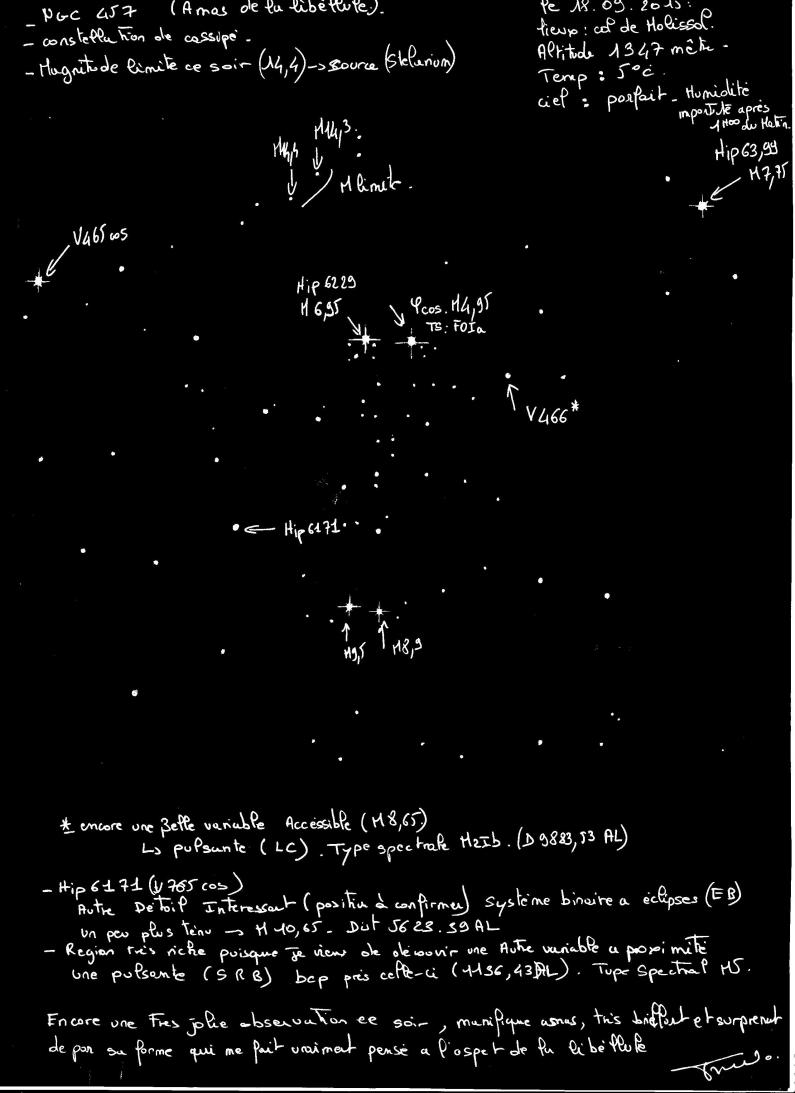 - NGC 457 (Amas de la libellule).
- constellation de cassiopé.
- Magnitude limite ce soir (14,4) -> source (Stelarium)
le 18.09.2015:
lieux : col de
Altitude 1347 mètre.
Temp : 5°c.
ciel : parfait - Humidité
après
1H00 du Matin.
M14,3
M14,4
M limit.
Hip 63,99
M7,75
V465 cas
Hip 6229
M 6,95
φcas. M4,95
TS: FOIa
V466*
Hip 6171
M9,5
M8,9
* encore une Belle variable Accessible (M8,65)
↳ pulsante (LC). Type spectrale M2Ib. (D 9883,53 AL)
- Hip 6171 (V 765 cas)
Autre Detail Interessant (position à confirmer) système binaire a éclipses (EB)
un peu plus tenu -> M 10,65. Dist 5623.39 AL
- Region très riche puisque je viens de decouvrir une Autre variable a poximité
une pulsante (SRB) bcp près celle-ci (1136,43 AL). Type Spectral M5.
Encore une Tres jolie observation ce soir, manifique amas, très brillant et surprenant
de par sa forme qui me fait vraiment pensé a l'aspet de la libéllule